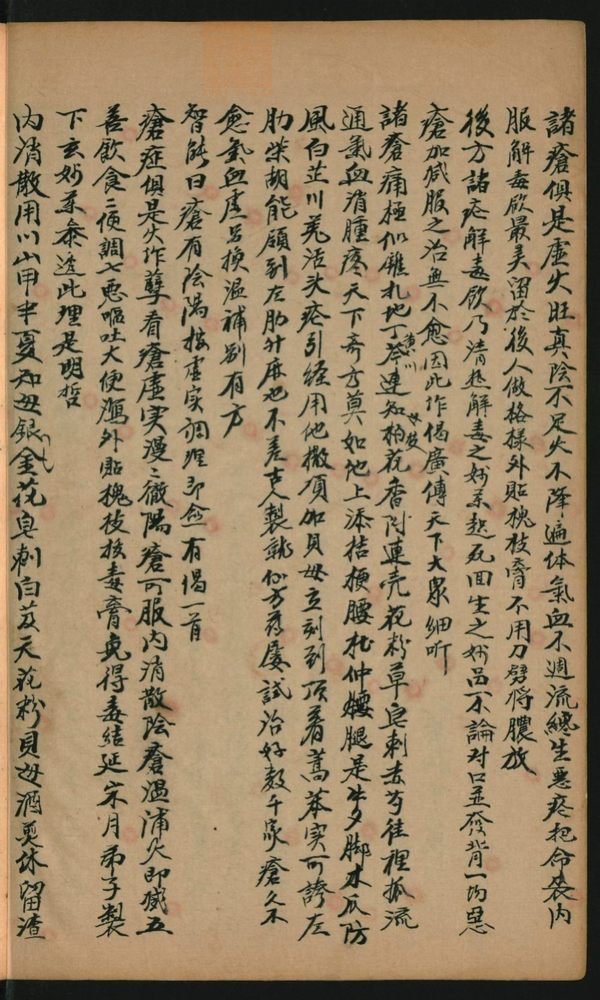 諸瘡俱是虛火旺真陰不足火不降遍体氣血不週流總生惡疮把命丧内
服解毒飲最美留於後人做格樣外貼槐枝膏不用刀劈將膿放
後方諸疮解毒飲乃清熱解毒之妙药起死回生之妙品不論对口並發背一切惡
瘡加减服之治無不愈因此作偈廣傳天下大衆細听
諸瘡痛極似錐扎地丁芩連知柏花香附連壳花粉草皂刺赤芍往裡抓流
通氣血消腫疼天下奇方莫如他上添桔梗腰杜仲腰腿是牛夕脚木瓜防
風白芷川羌活头疮引経用他撒項加貝母立刻到顶着蒿本实可誇左
肋柴胡能顧到左肋升麻也不差古人製就仙方药屡試治好数千家瘡久不
愈氣血虛另換溫補别有方
智能曰瘡有陰陽按虛实調理即愈有偈一首
瘡症俱是火作孽看瘡虛实漫漫徹陽瘡可服内消散陰瘡溫補火即滅五
善飲食二便調七惡嘔吐大便瀉外貼槐枝拔毒膏免得毒結延米月弟子製
下玄妙药参透此理是明哲
内消散用川山甲半夏知母銀金花皂刺白芨天花粉貝母酒煎休留渣